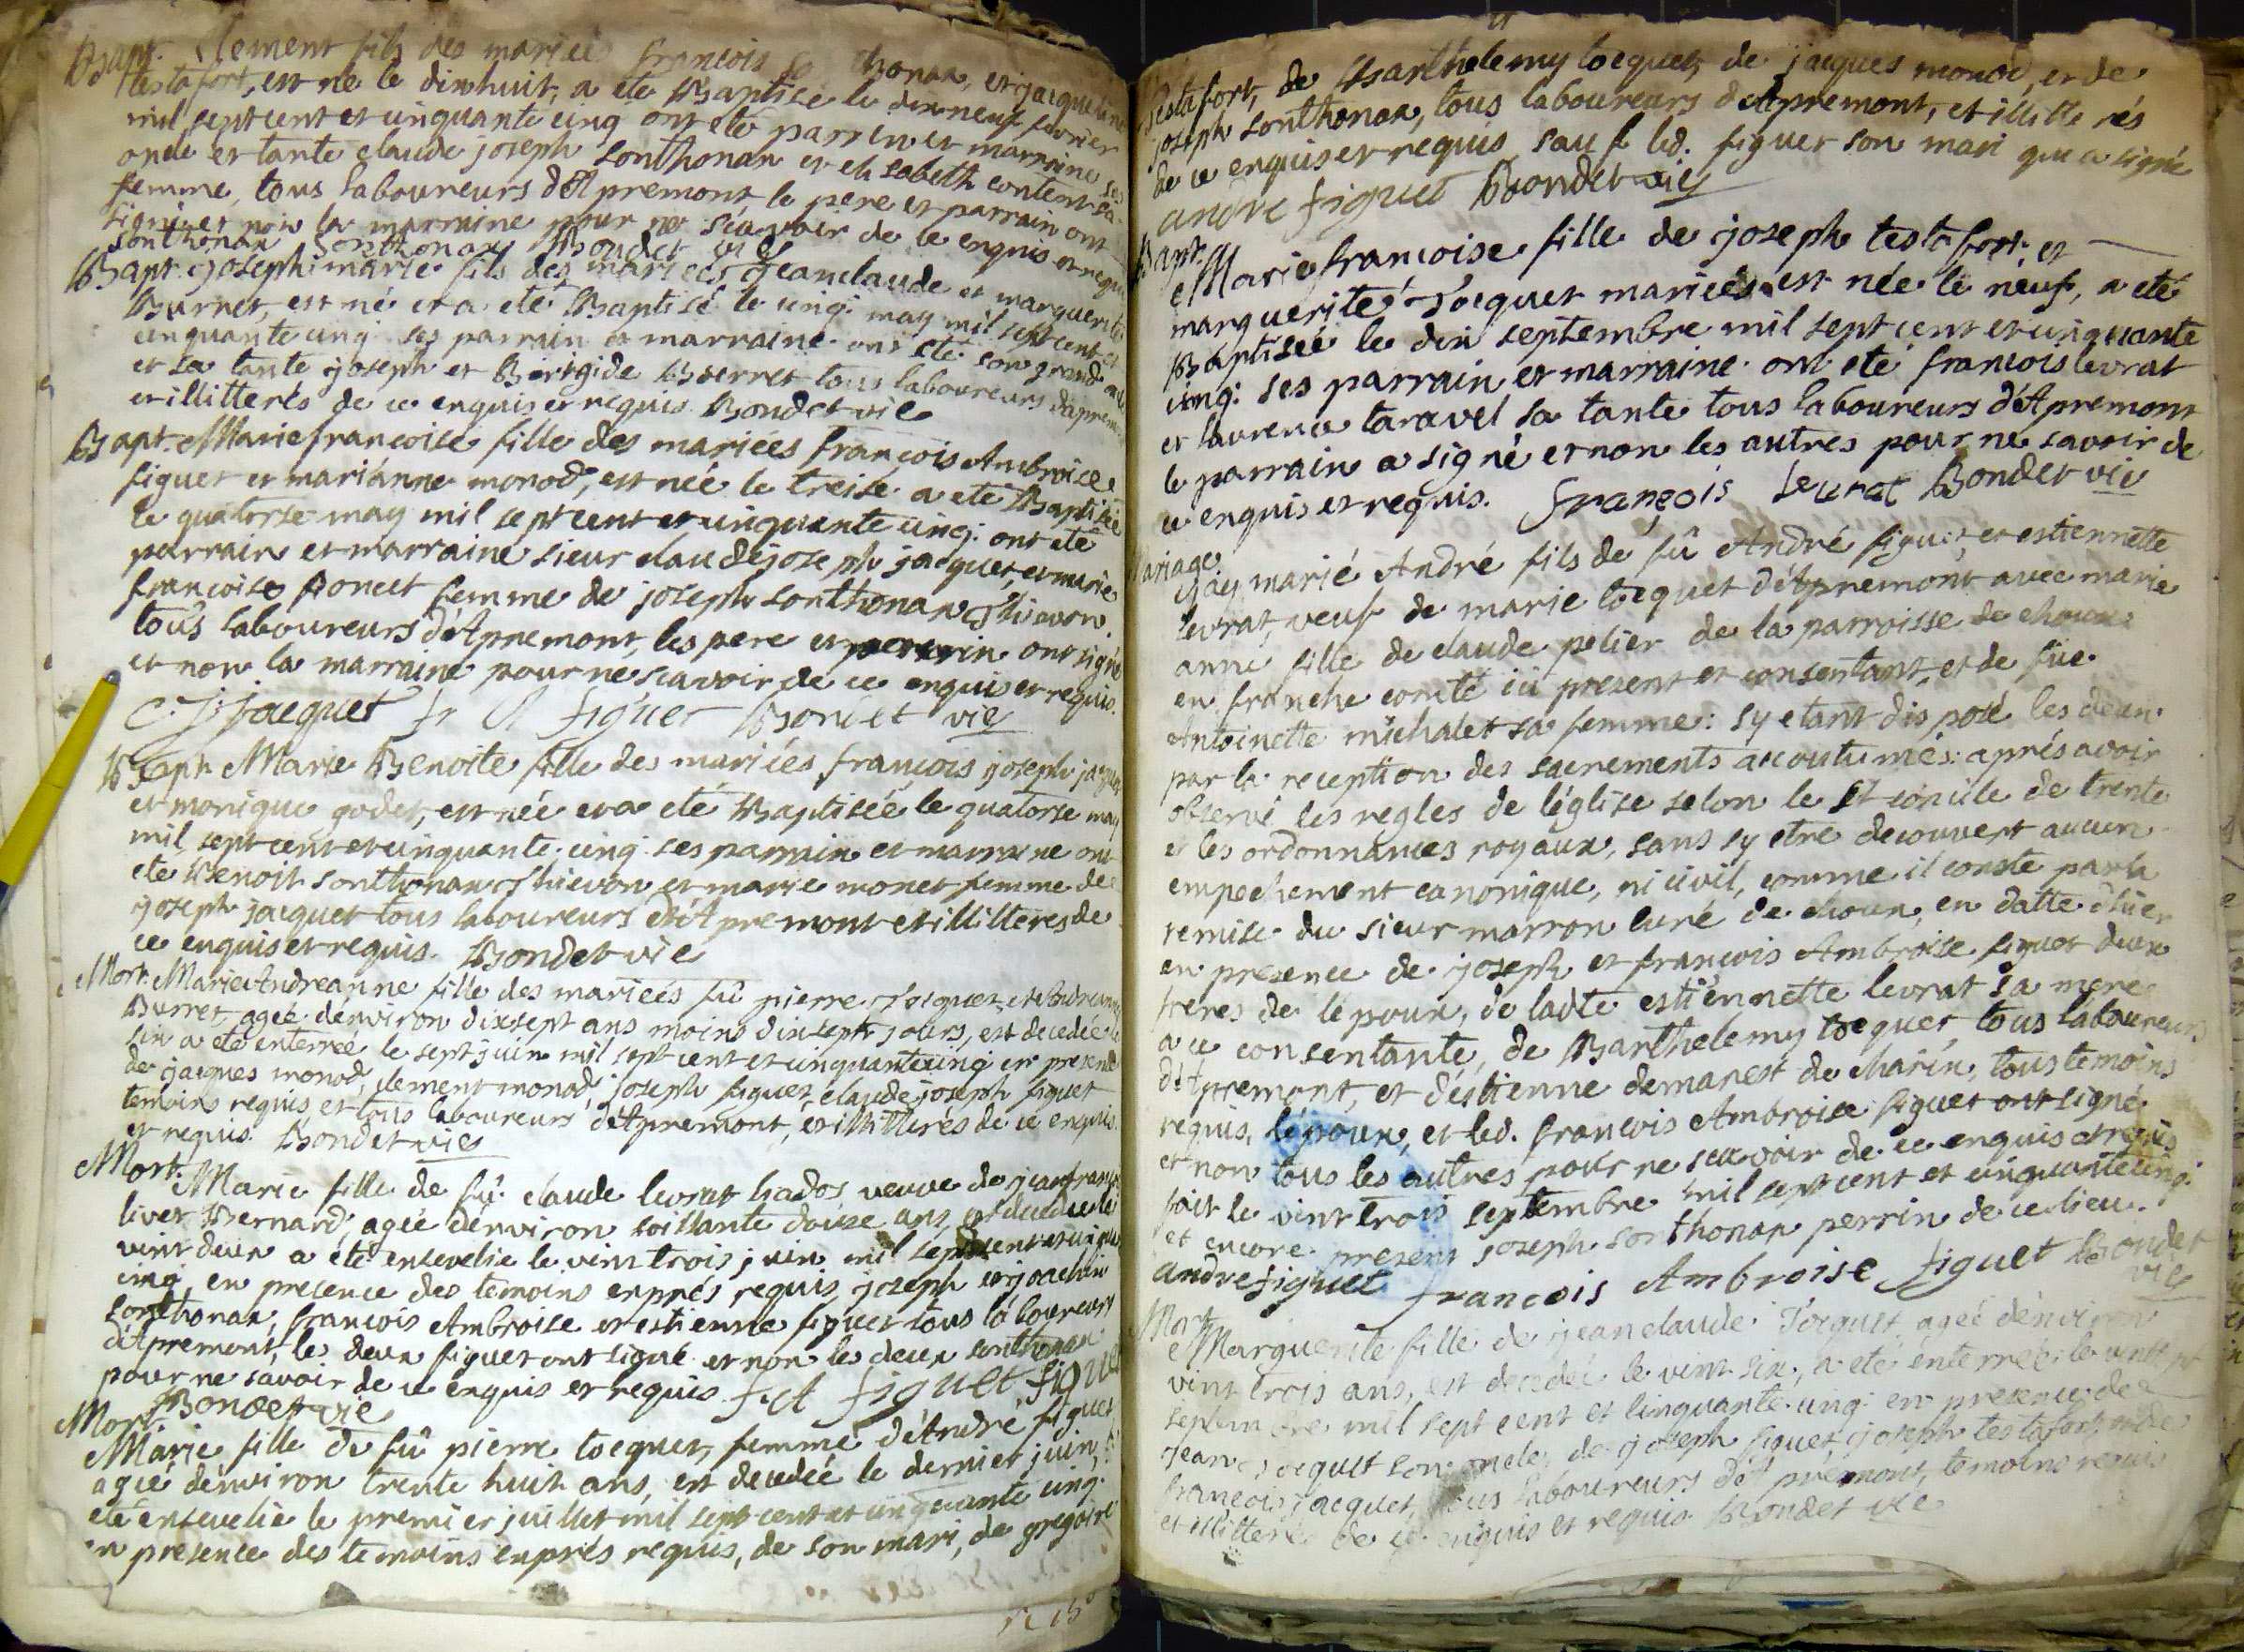 Bapt. Clement fils des mariés francois So thonax, et jacqueline
testafort, est né le dixhuit, a été Baptisé le dixneuf fevrier
mil sept cent et cinquante cinq ont été parrin et marraine ses
oncle et tante claude joseph sonthonax et elisabeth contents sa
femme, tous laboureurs d'Apremont le pere et parrain ont
signé et non la marraine pour ne sçavoir de ce enquis et requis
sonthonax Sonthonax Bondet vic
Bapt. joseph marie fils des mariées jeanclaude et marguerite
Burret, est né et a été Baptisé le cinq may mil sept cent et
cinquante cinq ses parrain et marraine ont été son grand
et sa tante joseph et Birigide Burret tous laboureurs d'apremont
et illitterés de ce enquis et requis Bondet vic
Bapt. Marie francoise fille des mariées francois Ambroise
figuet et marianne monod, est née le treise a été Baptisée
le quatorse may mil sept cent et cinquante cinq: ont été
parrain et marraine sieur claudejoseph jacquet, et marie
francoise poncet femme de joseph sonthonax Thievon
tous laboureurs d'Apremont, les pere et parrain ont signé
et non la marraine pour ne sçavoir de ce enquis et requis.
C. J. jacquet fr A figuet Bondet vic
Bapt Marie Benoite fille des mariées francois joseph jacquet
et monique godet, est née et a été Baptisée le quatorse may
mil sept cent et cinquante cinq ses parrain et marraine ont
été Benoit sonthonax Thievon, et marie monet femme de
joseph jacquet tous laboureurs d'Apremont et illitteres de
ce enquis et requis. Bondet vic
Mort. Marie Andreanne fille des mariées fû pierre Tocquet, et Andreanne
Burret, agée d'environ dixsept ans moins dixsept jours, est decedée le
six a été enterrée le sept juin mil sept cent et cinquante cinq en presence
de jacques monod, clement monod, joseph figuet, claude joseph figuet
temoins requis, et tous laboureurs d'Apremont, et illitterés de ce enquis
et requis. Bondet vic
Mort. Marie fille de fû claude levrat hados veuve de jean francois
livet Bernard, agée d'environ soissante douse ans, est decedée le
vint deux a été ensevelie le vint trois juin mil sept cent et cinquante
cinq, en presence des temoins exprés requis, joseph et joachim
sonthonax, francois Ambroise et estienne figuet tous laboureurs
d'Apremont, les deux figuet ont signé et non les deux sonthonax
pour ne savoir de ce enquis et requis. f A figuet figuet
Bondet vic
Mort. Marie fille de fû pierre tocquet, femme d'André figuet
agée d'environ trente huit ans, est decedée le dernier juin, a
été ensevelie le premier juillet mil sept cent et cinquante cinq
en presence des temoins exprés requis, de son mari, de gregoire
testafort, de Barthelemy tocquet, de jacques monod, et de
joseph sonthonax, tous laboureurs d'Apremont, et illitterés
de ce enquis et requis sauf led. figuet son mari qui a signé
andre figuet Bondet vic
Bapt. Marie francoise fille de joseph testafort, et
marguerite Tocquet mariées est née le neuf, a été
Baptisée le dix septembre mil sept cent et cinquante
cinq: ses parrain et marraine ont été francois levrat
et laurence taravel sa tante tous laboureurs d'Apremont
le parrain a signé et non les autres pour ne savoir de
ce enquis et requis. françois levrat Bondet vic
Mariage.
j'ay marié André fils de fû André figuet, et estiennette
levrat, veuf de marie tocquet d'Apremont avec marie
anne fille de claude pelier de la parroisse de choux
en franche comté ici present et consentant, et de fue
Antoinette michalet sa femme: s'y etant disposé les deux
par la reception des sacrements accoutumés: aprés avoir
observé les regles de l'église selon le St concile de trente
et les ordonnances royaux, sans s'y etre decouvert aucun
empechement canonique, ni civil, comme il conste par la
remise du sieur marron curé de choux, en datte d'hier
en presence de joseph et francois Ambroise figuet deux
freres de l'epoux, de ladte estiennette levrat sa mere
a ce consentante, de Barthelemy tocquet tous laboureurs
d'Apremont, et d'estienne demarest de charix, tous temoins
requis, l'epoux, et led. francois Ambroise figuet ont signé
et non tous les autres pour ne sçavoir de ce enquis et requis
fait le vint trois septembre mil sept cent et cinquante cinq:
et encore present joseph sonthonax perrin de ce lieu.
andre figuet francois Ambroise figuet Bondet
vic
Mort
Marguerite fille de jeanclaude Tocquet agée d'environ
vint trois ans, est decedée le vint six, a été enterrée le vint sept
septembre mil sept cent et cinquante cinq: en presence de
jean Tocquet son oncle, de joseph figuet, joseph testafort, et de
francois jacquet, tous laboureurs d'Apremont, temoins requis
et illitterés de ce enquis et requis Bondet vic